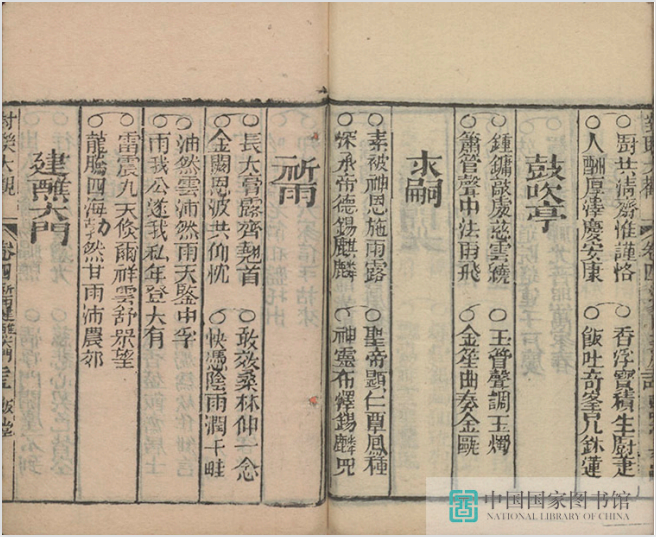 廚共清齋惟謹恪
香浮寶積生廚
人酬厚澤慶安康
飯吐奇峯
鼓吹亭
鍾鏞敲處慈雲繞
玉管聲調玉燭
簫管聲中法雨飛
金笙曲奏金甌
求嗣
素被神恩施雨露
聖帝顯仁覃鳳種
深承帝德錫麒麟
神靈布澤錫麟兒
祈雨
長大膏露齊翹首
敢效桑林伸一念
金闕恩波共仰忱
快慿陰雨潤千畦
油然雲沛然雨天鑒中孚
雨我公遂我私年登大有
雷震九天倐爾祥雲舒望
龍騰四海勃然甘雨沛農郊
建醮大門
對樂大觀
卷四
中国国家图书馆
NATIONAL LIBRARY OF CHINA